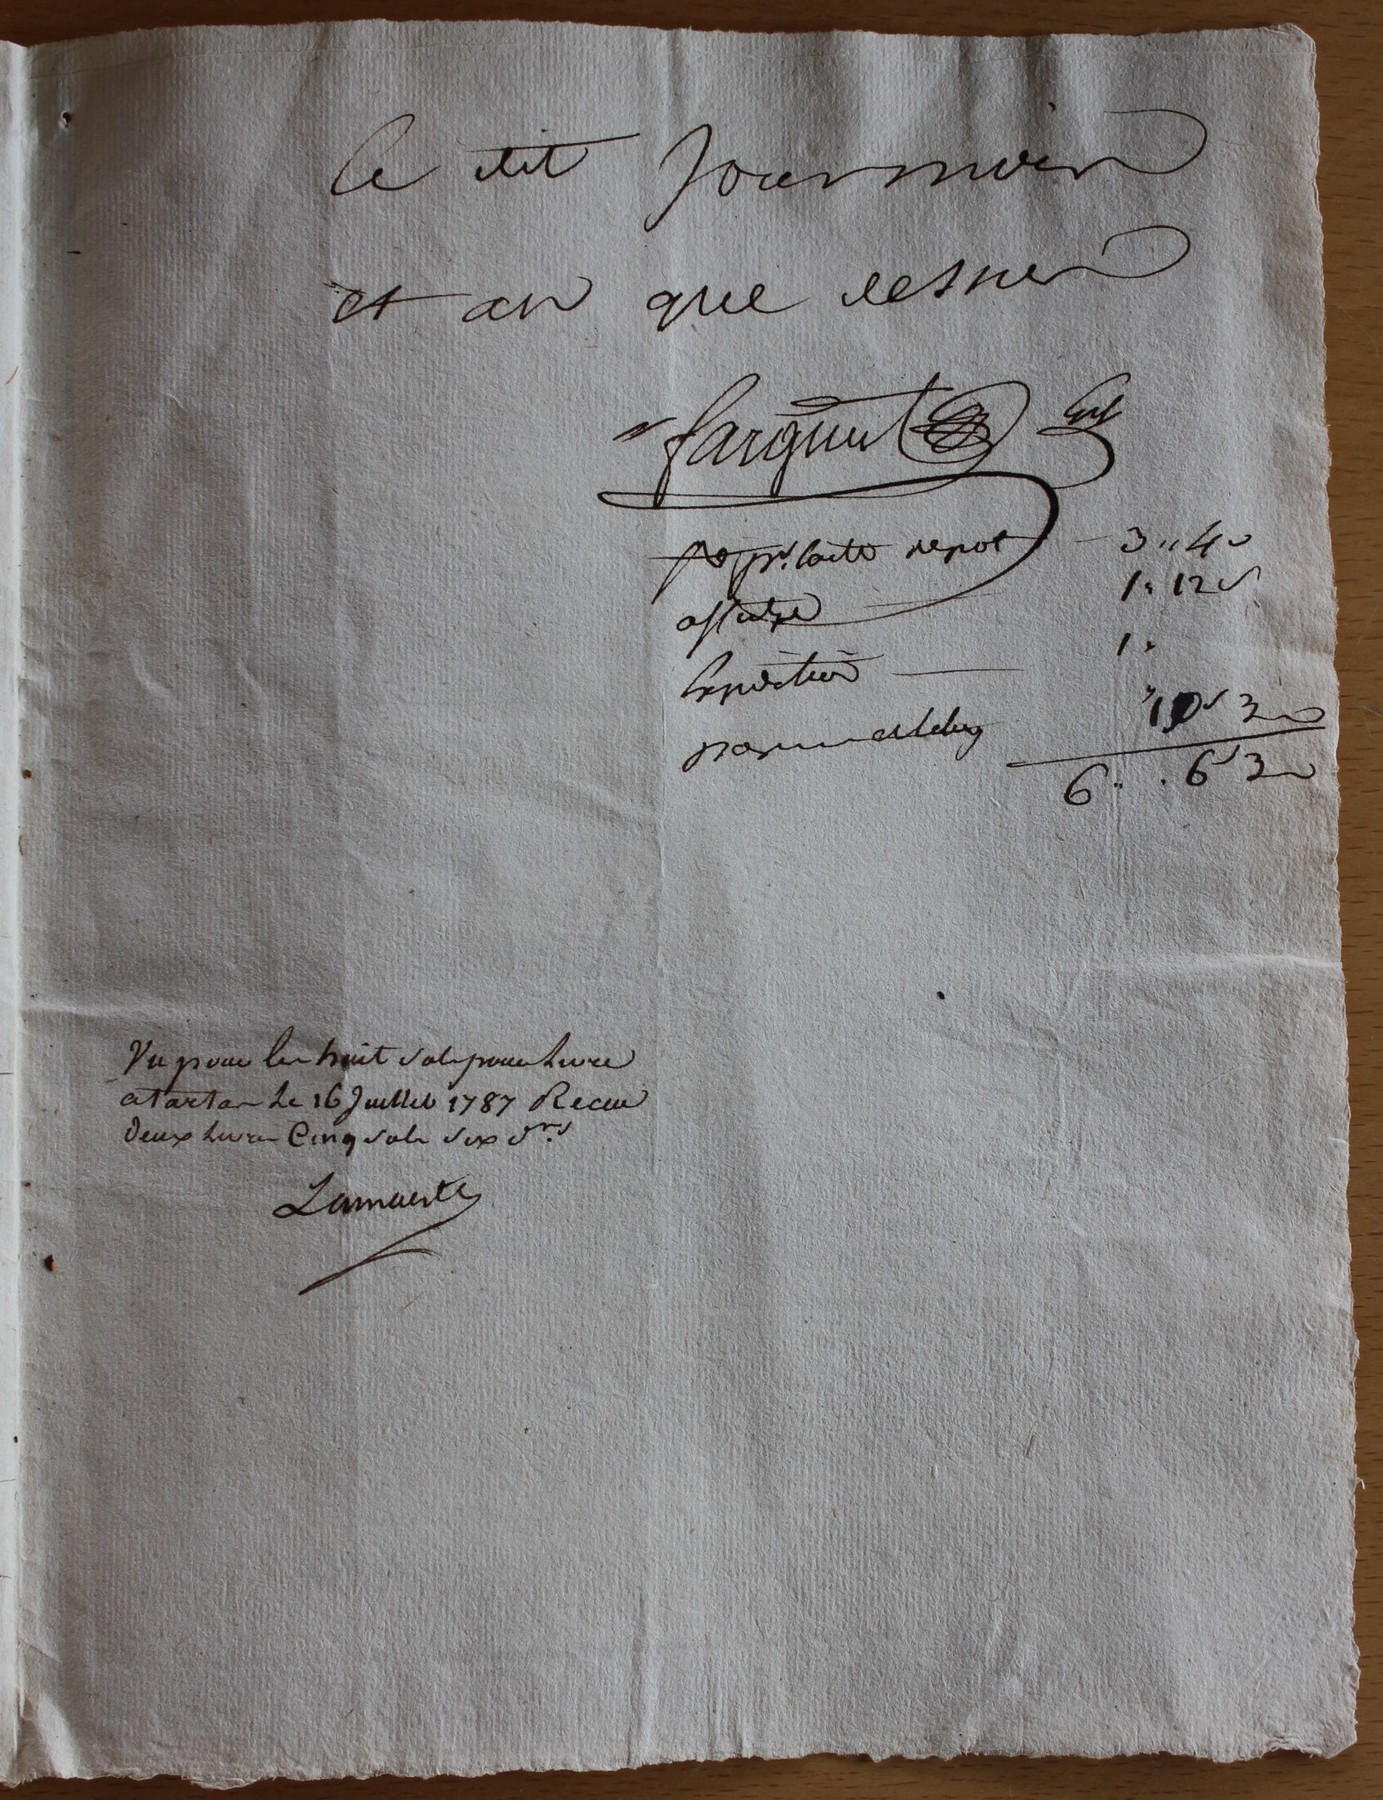 le dit jour mois
et an que dessus
farguet Grf
pr lacte depot 3 " 4 s
affiche 1 " 12 s
Expedition 1 "
papier et " 10 s 3 d
6 " 6 s 3 d
Vu pour les huit sols pour livre
a tartas le 16 Juillet 1787 Recu
deux livres Cinq sols six d.rs
Lamaerte